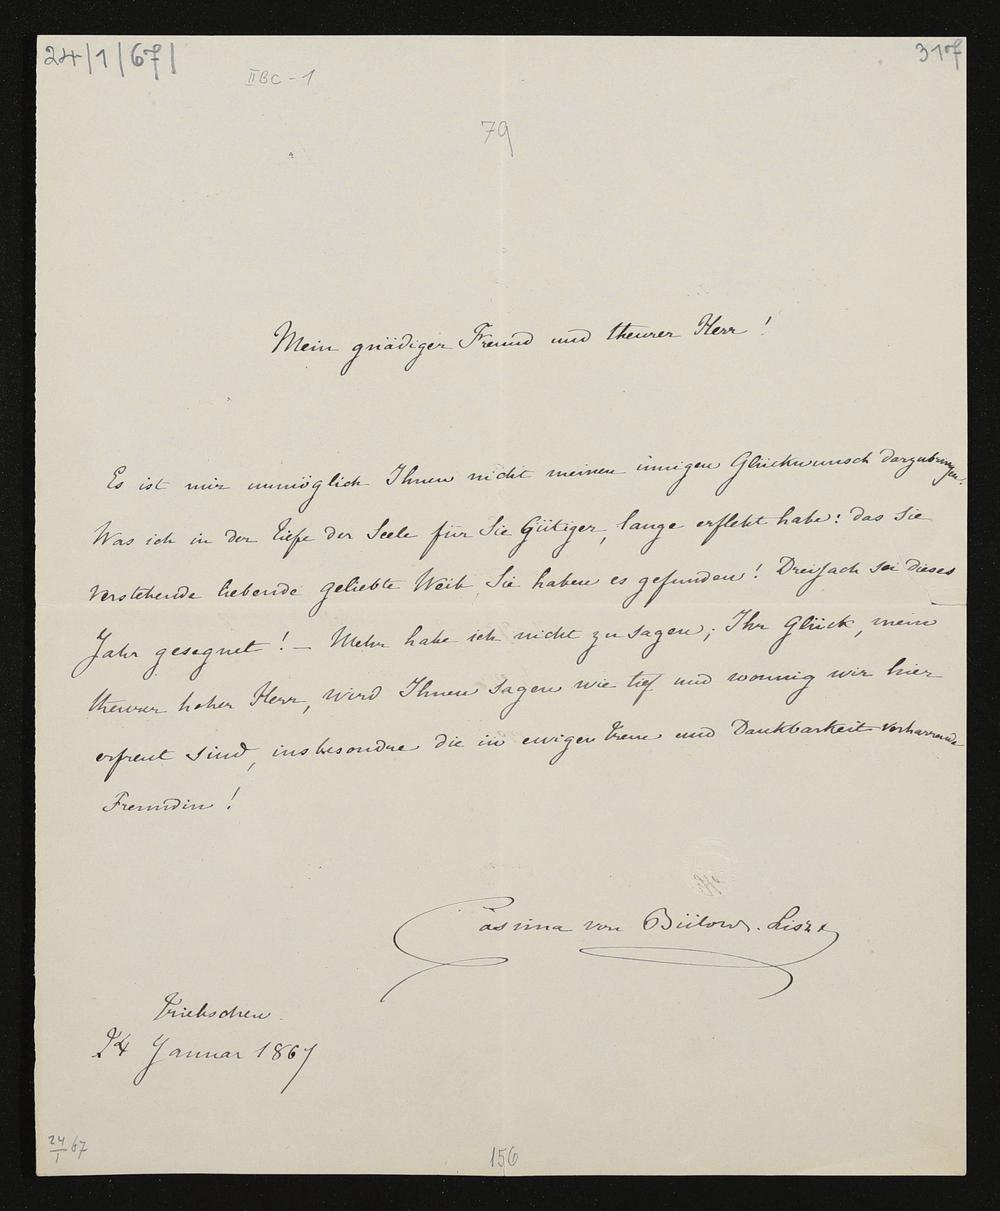 24/1/67/
317
IIBC-1
79
Mein gnädiger Freund und theurer Herr!
Es ist mir unmöglich Ihnen nicht meinen innigen Glückwunsch darzubringen.
Was ich in der Tiefe der Seele für Sie Gütiger, lange erfleht habe: das Sie
verstehende liebende geliebte Weib, Sie haben es gefunden! Dreifach sei dieses
Jahr gesegnet! – Mehr habe ich nicht zu sagen; Ihr Glück, mein
theurer hoher Herr, wird Ihnen sagen wie tief und wonnig wir hier
erfreut sind, insbesondre die in ewiger Treue und Dankbarkeit verharrende
Freundin!
Cosima von Bülow-Liszt
Triebschen.
24 Januar 1867
24/1 67
156